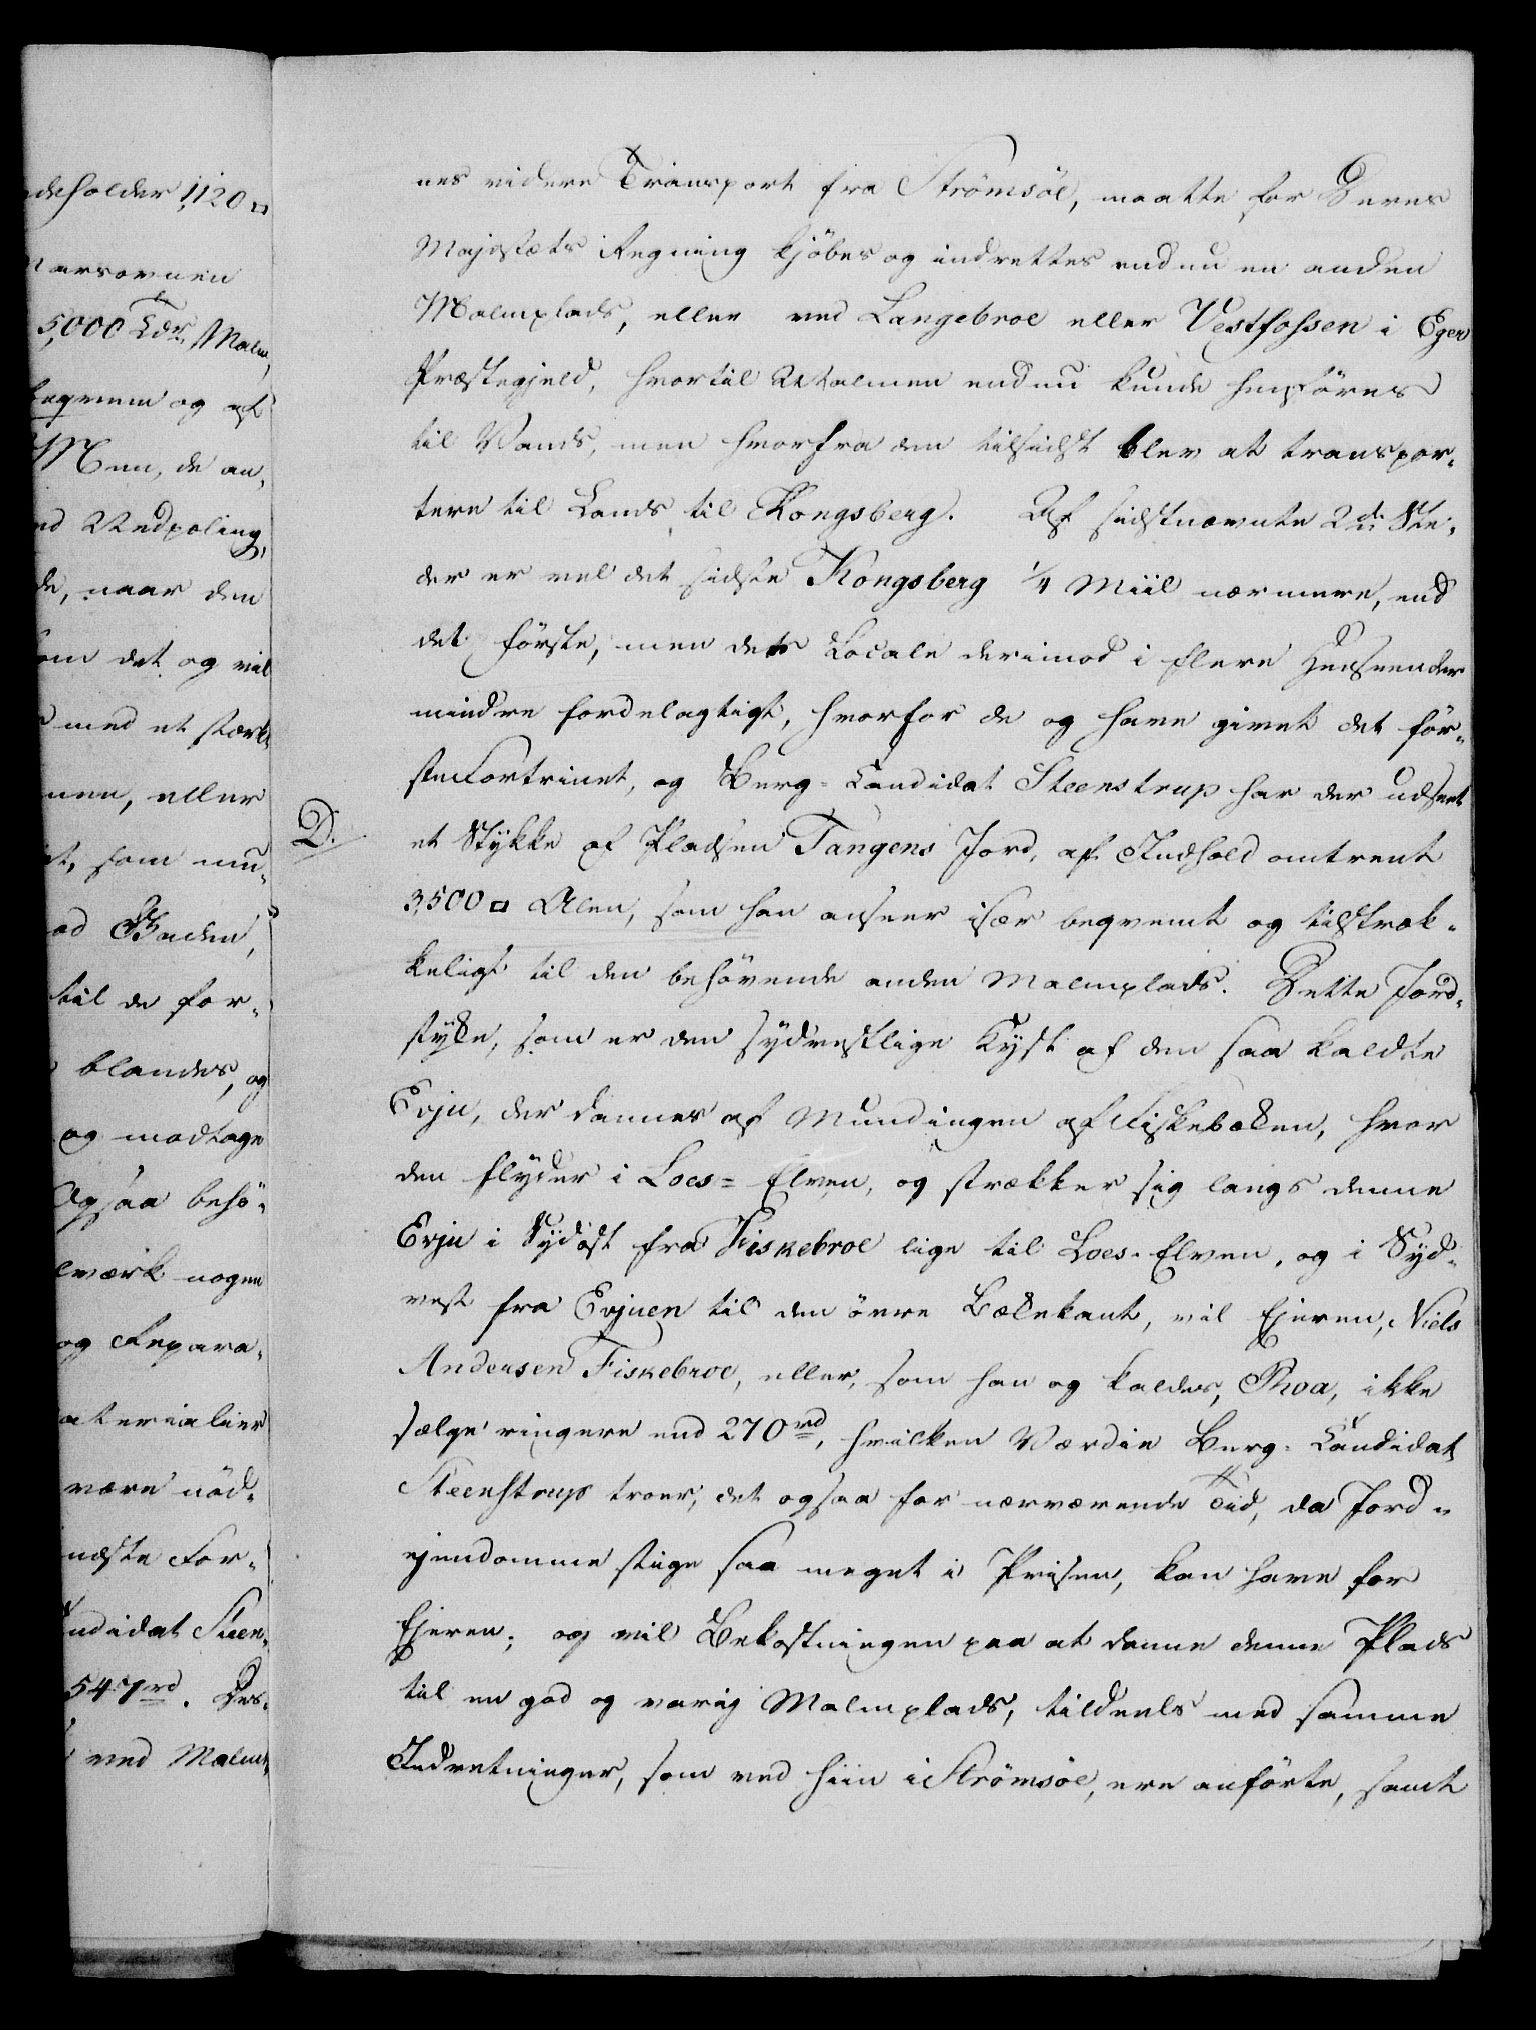 deholder 1,120 □
arsovnen
5,000 Tdr Malm,
beqvem og at
Men, de an,
ed Vedpoling,
de, naar den
om det og vil
med et stærk
nen, eller
t, som nu,
od Gaden,
til de for-
blandes, og
og modtage
Ogsaa behö-
lværk nogen
og Repara-
aterialier
være nöd-
næste For-
ndidat Steen-
547 rd. Des-
ved Malm-
nes videre Transport fra Strömsöe, maatte for Deres
Majestæts Regning kjöbes og indrettes endnu en anden
Malmplads, eller ved Langebroe eller Vestfossen i Eger
Præstegjeld, hvortil Malmen endnu kunde henföres
til Vands, men hvorfra den tilsidst blev at transpor-
tere til Lands til Kongsberg. Af sidstnævnte 2de Ste-
der er vel det sidste Kongsberg 1/4 Miil nærmere, end
det förste, men dets Locale derimod i flere Henseender
mindre fordelagtigt, hvorfor de og have givet det för-
ste Fortrinet, og Berg-Candidat Steenstrup har der udseet
D. et Stykke af Pladsen Tangens Jord, af Indhold omtrent
3,500 □ Alen, som han anseer især beqvemt og tilstræk-
keligt til den behövende anden Malmplads. Dette Jord-
stykke, som er den sydvestlige Kyst af den saa kaldte
Evju, der dannes af Mundingen af Fiskebækken, hvor
den flyder i Loes-Elven, og strækker sig langs denne
Evju i Sydöst fra Fiskebroe lige til Loes-Elven, og i Syd-
vest fra Evjuen til den övre Bakkekant, vil Ejeren, Niels
Andersen Fiskebroe, eller, som han og kaldes, Moa, ikke
sælge ringere end 270 rd, hvilken Værdie Berg-Candidat
Steenstrup troer, det ogsaa for nærværende Tid, da Jord-
ejendomme stige saa meget i Prisen, kan have for
Ejeren; og vil Bekostningen paa at danne denne Plads
til en god og varig Malmplads, tildeels med samme
Indretninger, som ved hiin i Strömsöe, ere anförte, samt